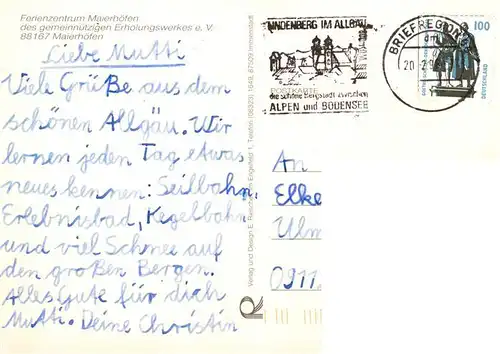 Ferienzentrum Maierhöfen
des gemeinnützigen Erholungswerkes e. V.
88167 Maierhöfen
Liebe Mutti
Viele Grüße aus dem
schönen Allgäu. Wir
lernen jeden Tag etwas
neues kennen: Seilbahn,
Erlebnisbad, Kegelbahn
und viel Schnee auf
den großen Bergen.
Alles Gute für dich
Mutti. Deine Christin
LINDENBERG IM ALLGÄU
POSTKARTE
die schöne Bergstadt zwischen
ALPEN und BODENSEE
BRIEFREGION
20
100
DEUTSCHLAND
Verlag und Design E.
An
Elke
Ulm
0911